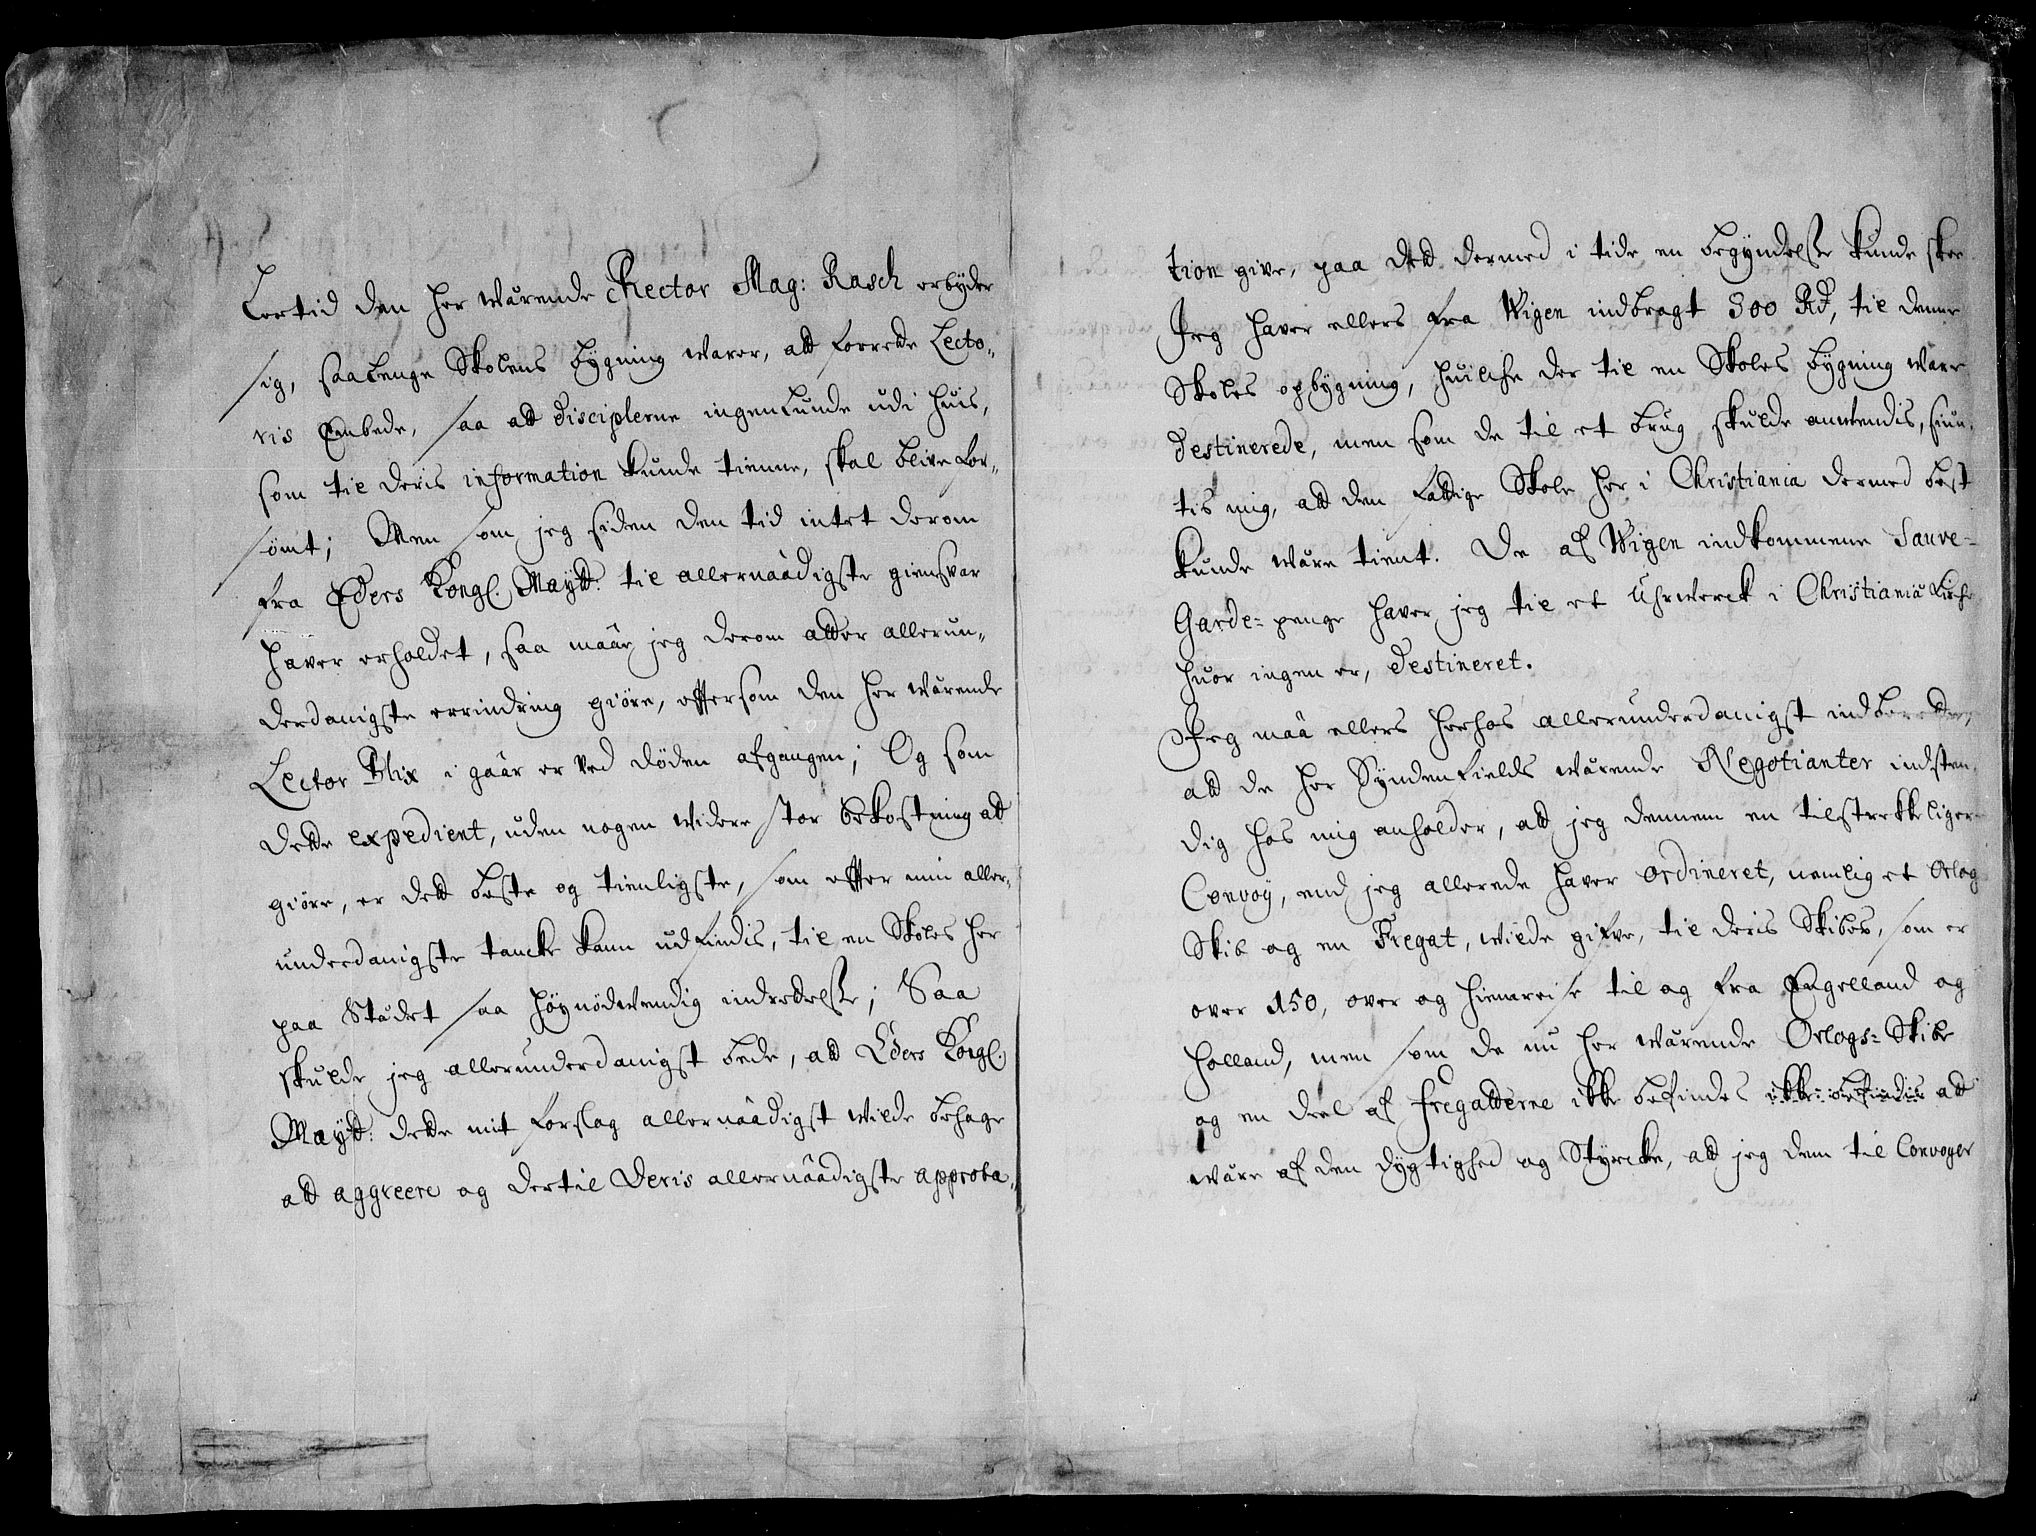 Eertid den her wårende Rector Mag: Rasch erbyder
sig, saalenge Skolens bygning warer, att forrette Lecto„
ris Embede, saa att disciplerne ingenlunde udi huis,
som til deris information kunde tienne, skal blive for„
sömt; Men som jeg siden den tid intet derom
fra Eders Kongl. Mayt: til allernaadigste giensvar
haver erholdet, saa maar jeg derom atter allerun„
derdanigste errindring giöre, eftersom den her wårende
Lector Blix i gaar er ved döden afgangen; Og som
dette expedient, uden nogen widere stor bekostning att
giöre, er dett beste og tienligste, som effter min aller„
underdanigste tancke kann udfindis, til en Skoles her
paa Stådet saa höynödwendig indrettelsse; Saa
skulde jeg allerunderdanigst bede, att Eders Kongl.
Mayt: dette mit forslag allernaadigst wilde behage
att aggreere og dertil Deris allernaadigste approba„
tion give, paa dett dermed i tide en begyndelsse kunde skee.
Jeg haver ellers fra Wigen indbragt 300 Rd, til denne
Skoles opbygning, huilche der til en Skoles bygning ware
destinerede, men som de til et brug skulde anwendis, siun„
tis mig, att den fattige Skole her i Christiania dermed best
kunde wåre tient. De af Wigen indkommene Sauve-
Garde-penge haver jeg til et Uhrwerck i Christiania Kirche
huor ingen er, destineret.
Jeg maa ellers herhos allerunderdanigst indberette,
att de her Syndenfields wårende Negotianter indsten„
dig hos mig anholder, att jeg dennem en tilstrekkeliger
Convoy, end jeg allerede haver ordineret, nemlig et Orlog
Skib og en Fregat, wilde gifve, til deris Skibes, som er
over 150, over og hiemreise til og fra Engelland og
Holland, men som de nu her wårende Orlogs-Skibe
og en deel af fregatterne ikke befindes ikke befindis att
wåre af den dygtighed og Styrcke, att jeg dem til Convoyer